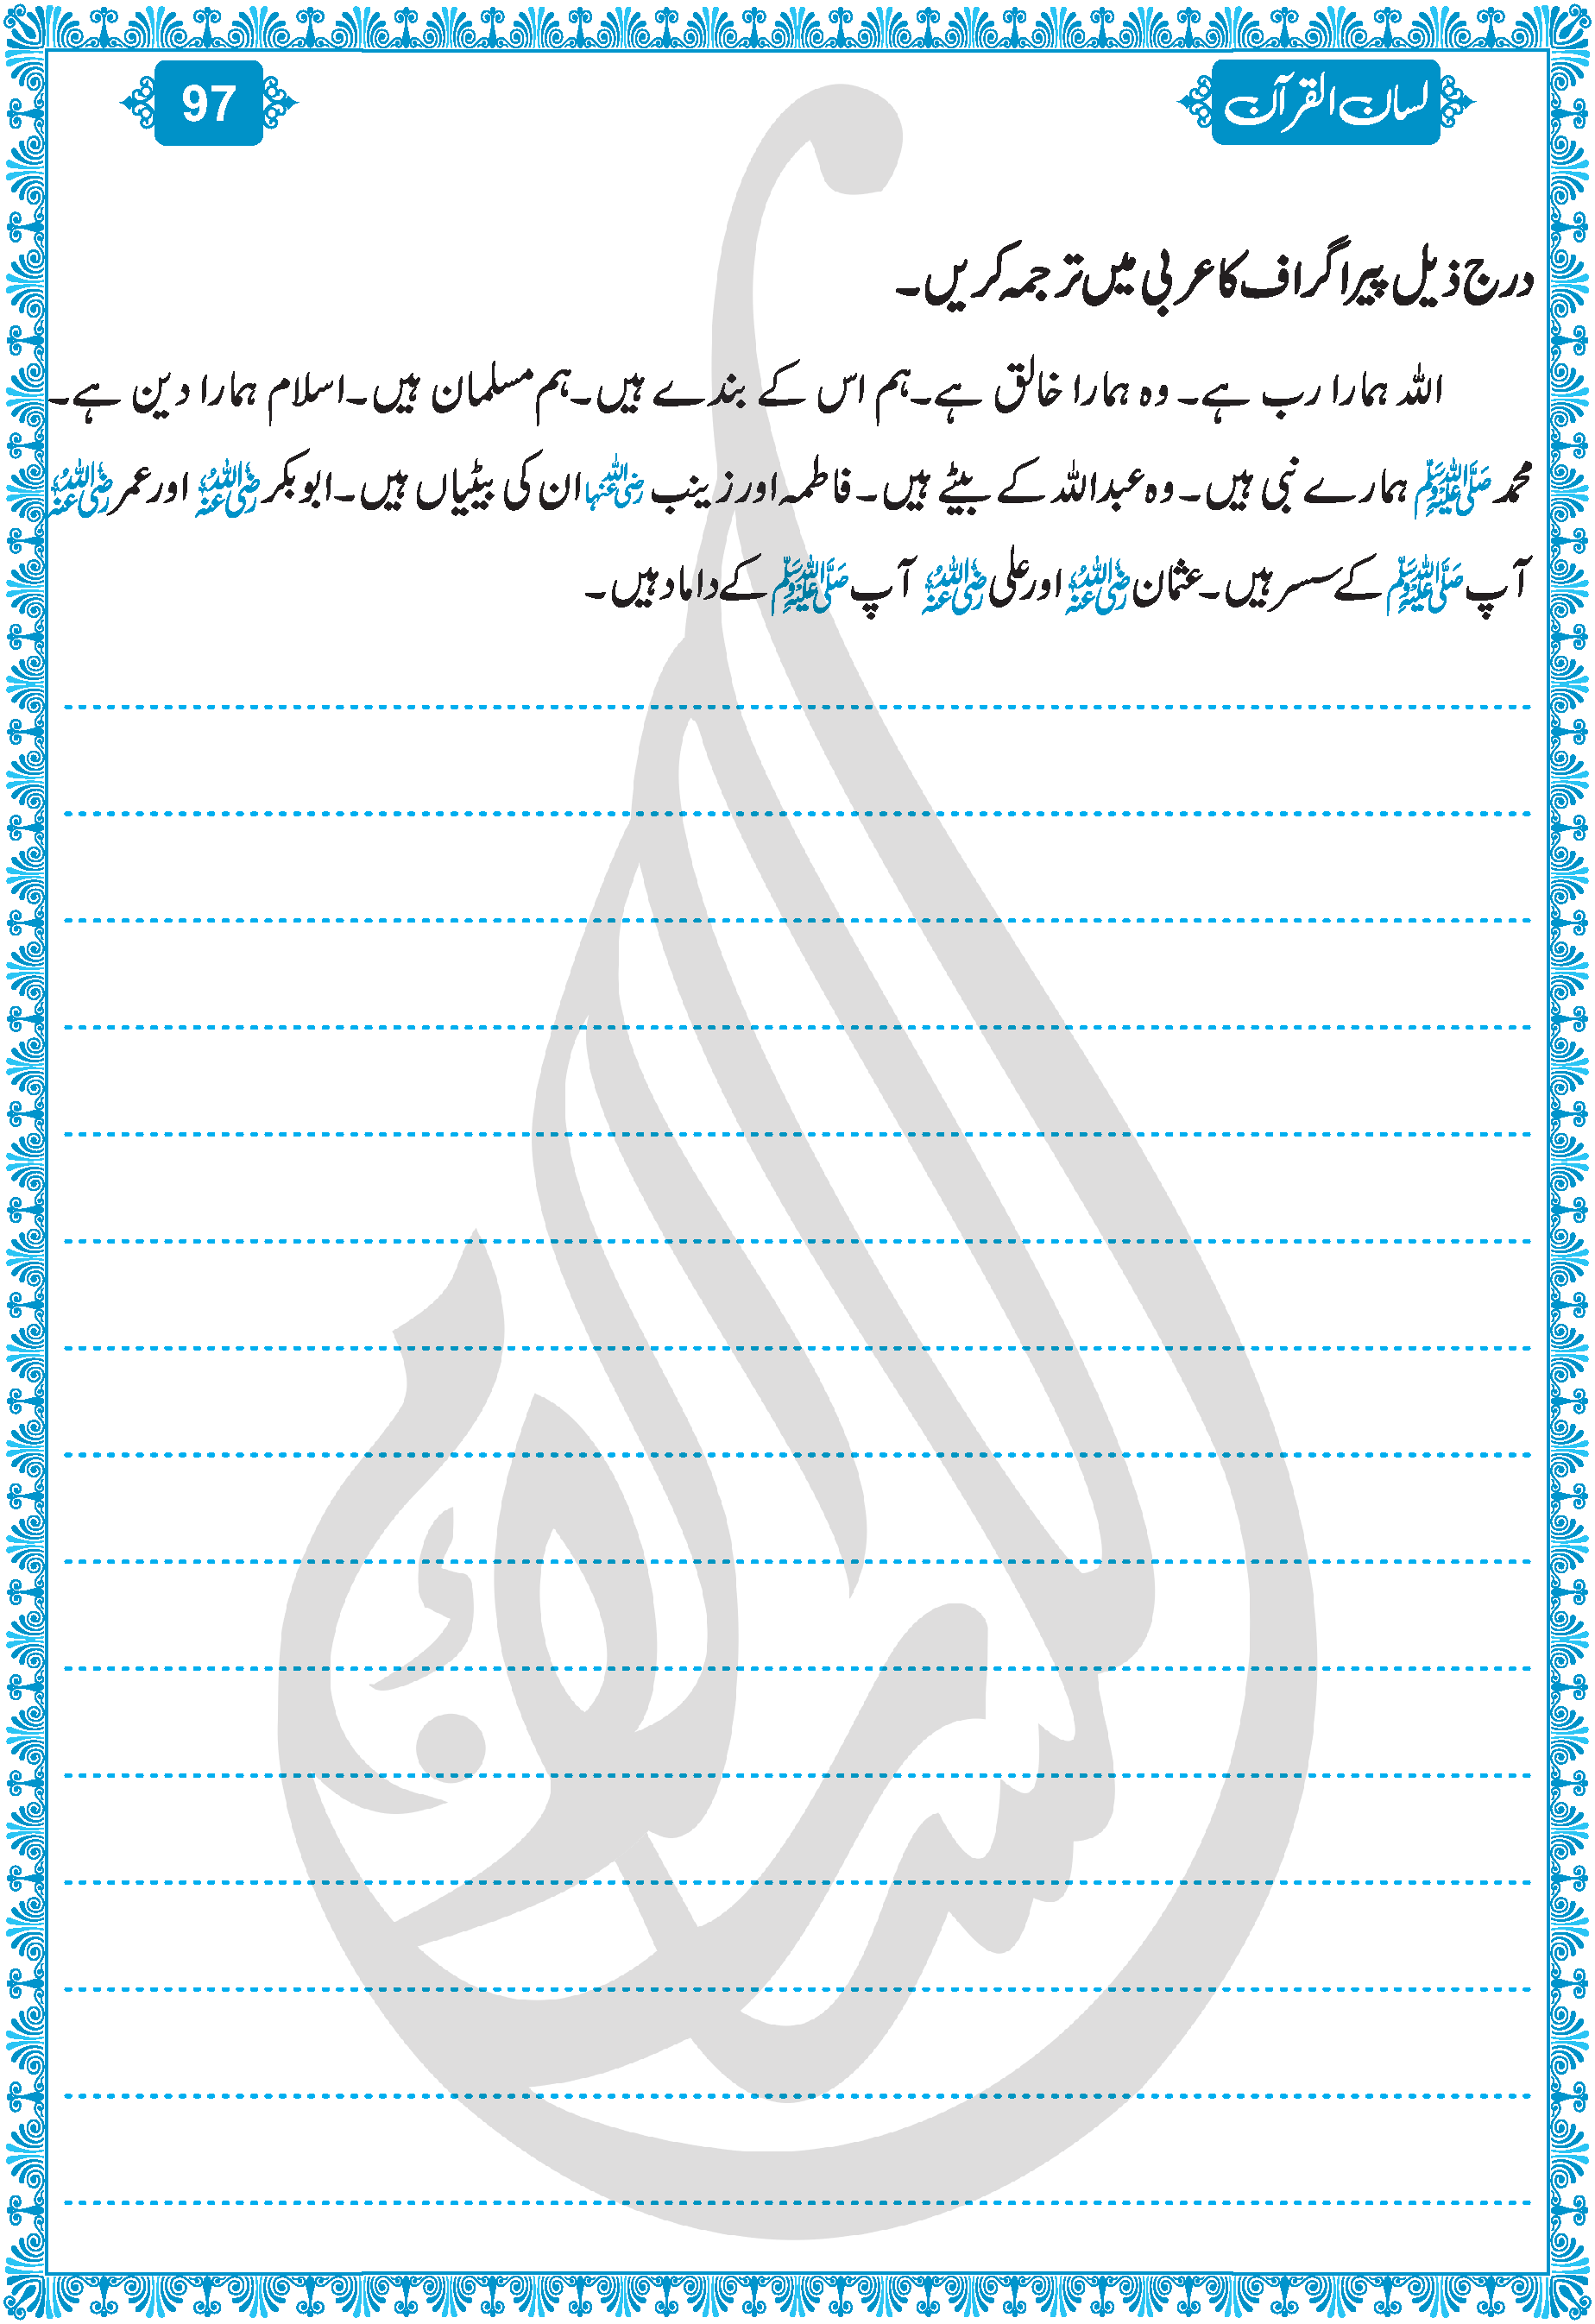 لسان القرآن
97
درج ذیل پیراگراف کا عربی میں ترجمہ کریں۔
اللہ ہمارا رب ہے۔ وہ ہمارا خالق ہے۔ہم اس کے بندے ہیں۔ہم مسلمان ہیں۔اسلام ہمارا دین ہے۔
محمد ﷺ ہمارے نبی ہیں۔وہ عبداللہ کے بیٹے ہیں۔فاطمہ اور زینب رضی اللہ عنہا ان کی بیٹیاں ہیں۔ابوبکر رضی اللہ عنہ اور عمر رضی اللہ عنہ
آپ ﷺ کے سسر ہیں۔عثمان رضی اللہ عنہ اور علی رضی اللہ عنہ آپ ﷺ کے داماد ہیں۔